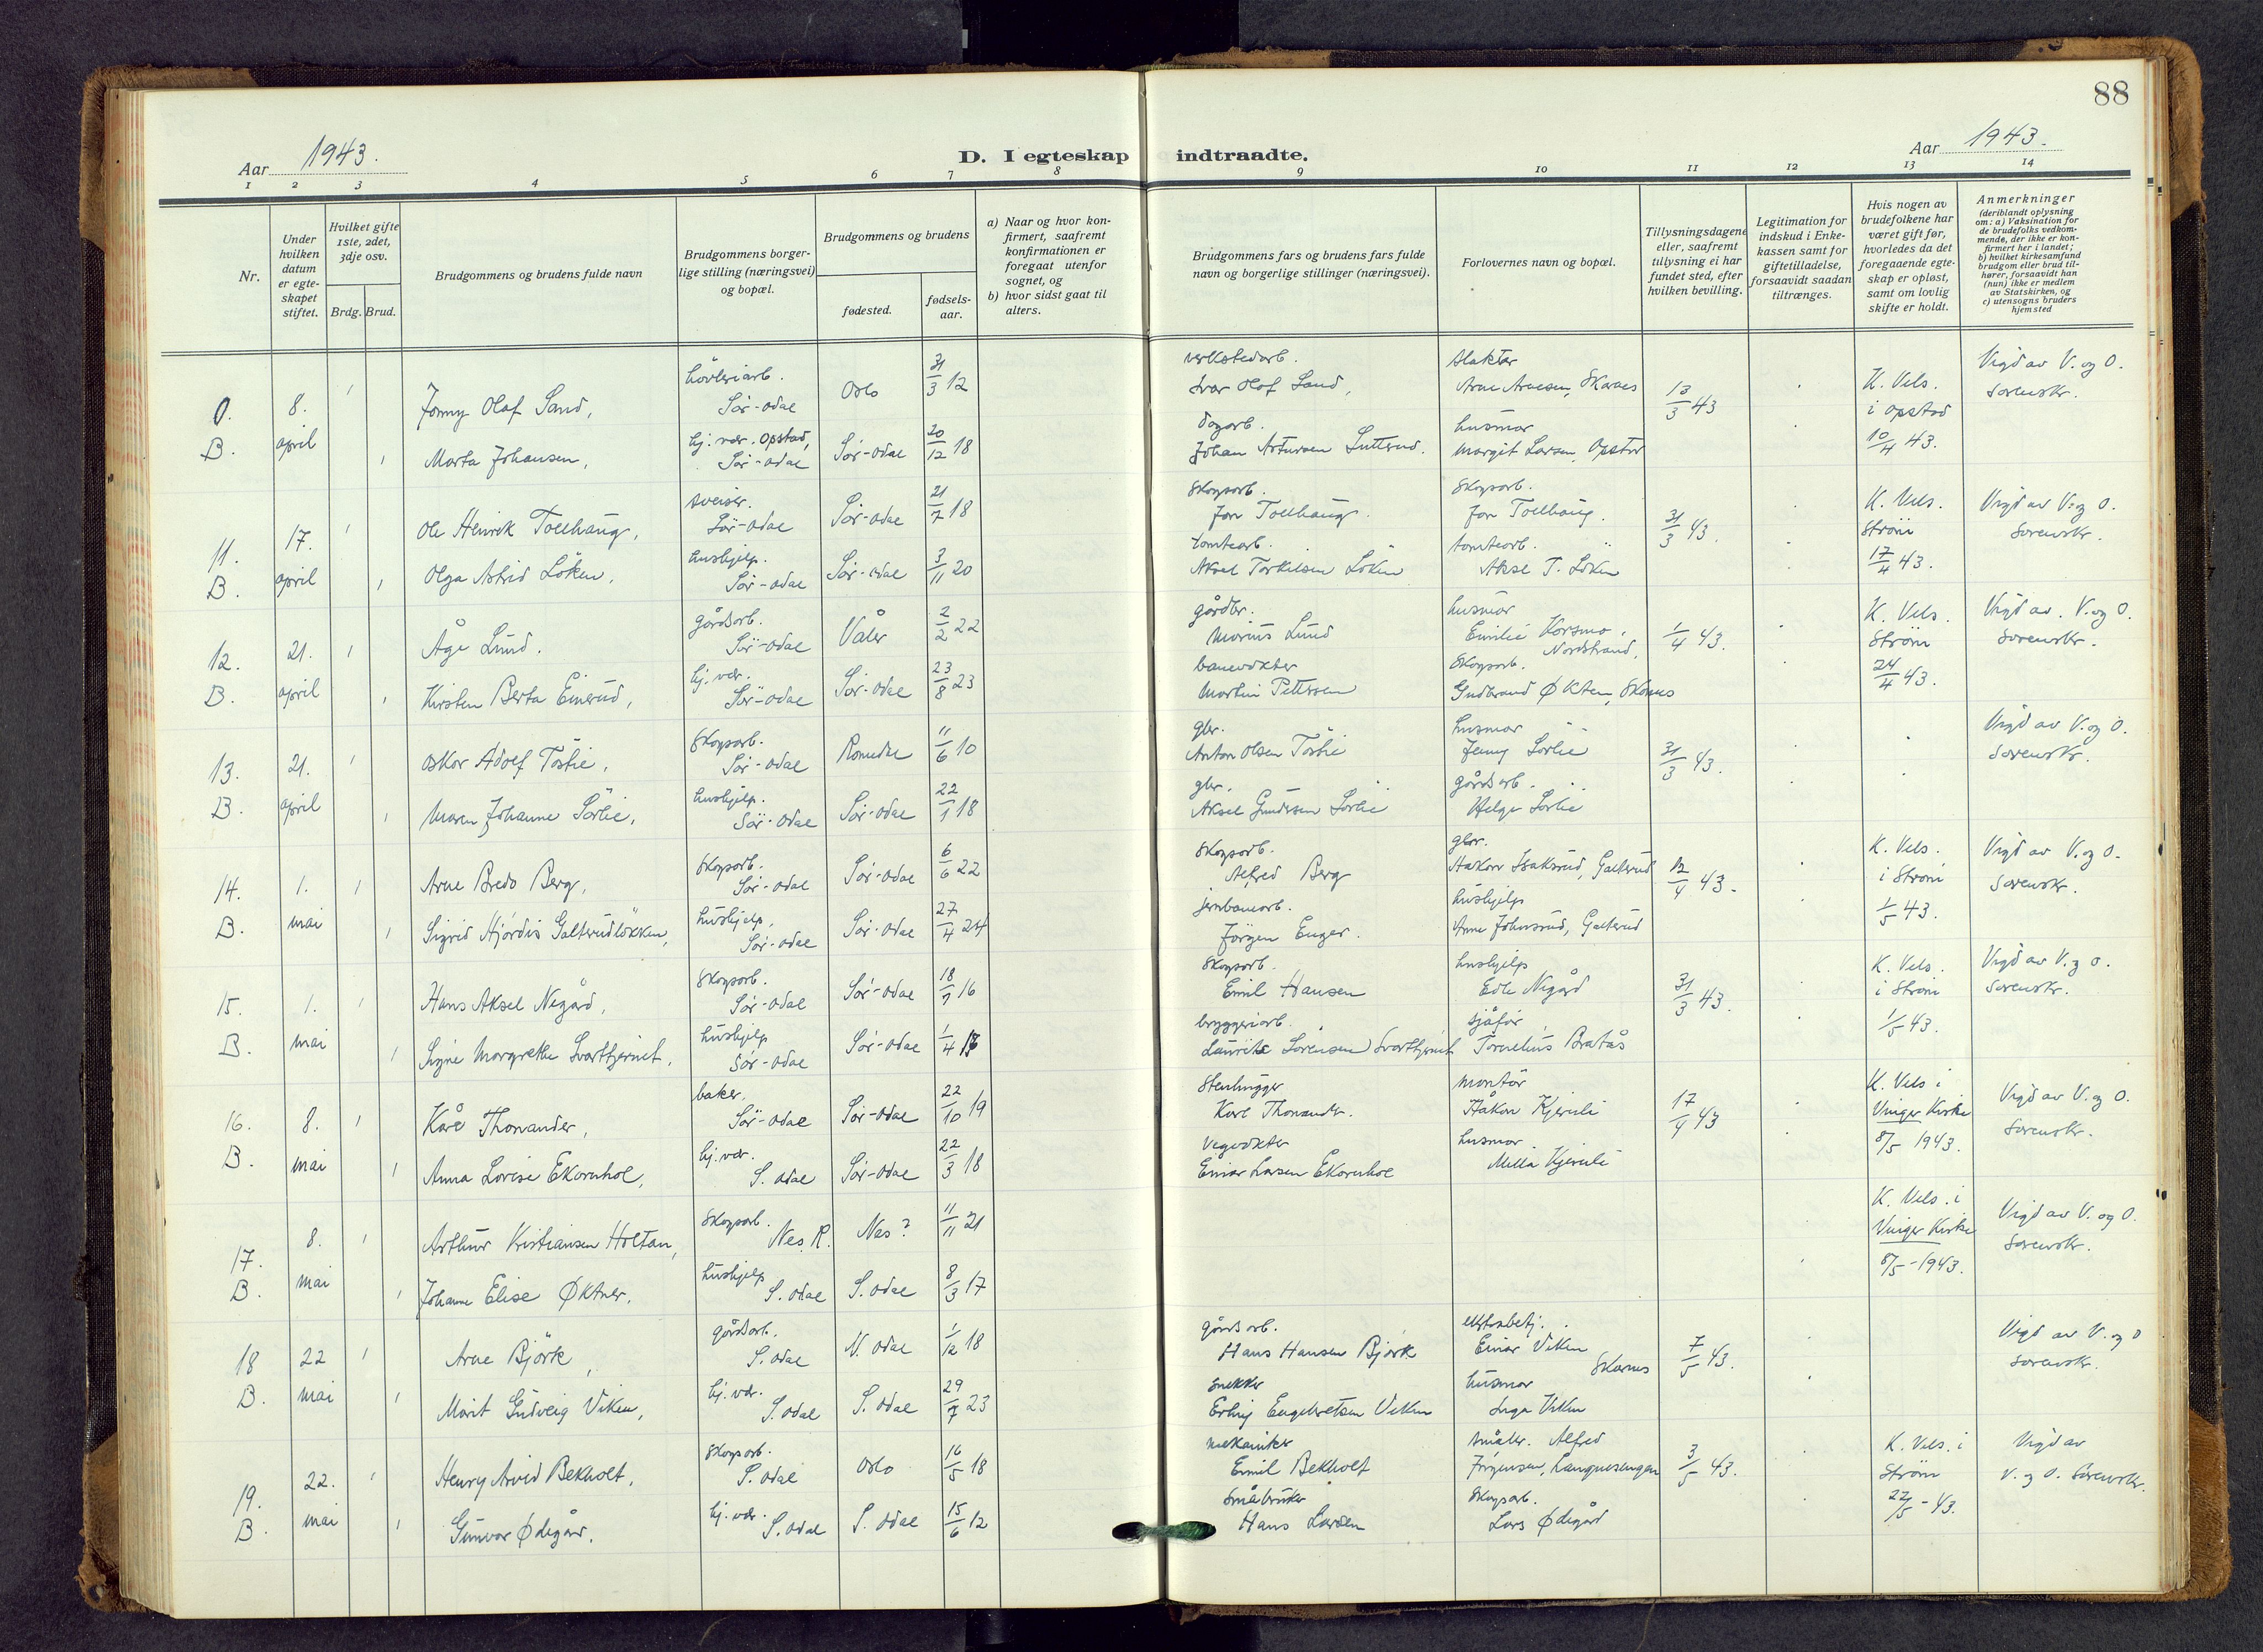 88
Aar 1943.
D. I egteskap indtraadte.
Aar 1943.
1 2 3 4 5 6 7 8 9 10 11 12 13 14
Nr.
Under hvilken datum er egteskapet stiftet.
Hvilket gifte 1ste, 2det, 3dje osv.
Brdg. Brud.
Brudgommens og brudens fulde navn
Brudgommens borgerlige stilling (næringsvei) og bopæl.
Brudgommens og brudens
fødested.
fødselsaar.
a) Naar og hvor konfirmert, saafremt konfirmationen er foregaat utenfor sognet, og
b) hvor sidst gaat til alters.
Brudgommens fars og brudens fars fulde navn og borgerlige stillinger (næringsvei).
Forlovernes navn og bopæl.
Tillysningsdagene eller, saafremt tillysning ei har fundet sted, efter hvilken bevilling.
Legitimation for indskud i Enkekassen samt for giftetilladelse, forsaavidt saadan tiltrænges.
Hvis nogen av brudefolkene har været gift før, hvorledes da det foregaaende egteskap er opløst, samt om lovlig skifte er holdt.
Anmerkninger (deriblandt oplysning om: a) Vaksination for de brudefolks vedkommende, der ikke er konfirmert her i landet; b) hvilket kirkesamfund brudgom eller brud tilhører, forsaavidt han (hun) ikke er medlem av Statskirken, og c) utensogns bruders hjemsted
0. 8. 1 Jonny Olaf Sand, høvleriarb. Sør-Odal Oslo 31/3 12 verkstedarb. Ivar Olof Sand, slakter Arne Arnesen, Skarnes 13/3 43 K. Vels. i Opstad Vigd av V. og O. Sorenskr.
B. april 1 Marta Johansen, hj. vær. Opstad, Sør-Odal Sør-Odal 20/12 18 dagarb. Johan Artursen Lutterud. husmor Margit Larsen, Opstad 10/4 43.
11. 17. 1 Ole Henrik Tollhaug, sveiser. Sør-Odal Sør-Odal 21/7 18 skogsarb. Jon Tollhaug. skogsarb. Jon Tollhaug. 31/3 43. K. Vels. Strøm Vigd av V. og O. Sorenskr.
B. april 1 Olga Astrid Løken, hushjelp. Sør-Odal Sør-Odal 3/11 20 tomtearb. Aksel Torkilsen Løken tomtearb. Aksel T. Løken 17/4 43.
12. 21. 1 Åge Lund. gårdsarb. Sør-Odal Våler 2/2 22 gårdbr. Marius Lund husmor Emilie Korsmo, Nordstrand, 1/4 43. K. Vels. Strøm Vigd av. V. og O. Sorenskr.
B. april 1 Kirsten Berta Einerud, hj. vær. Sør-Odal Sør-Odal 23/8 23 banevokter Martin Pettersen skogsarb. Gudbrand Økten, Skarnes 24/4 43.
13. 21. 1 Oskar Adolf Tostie, skogsarb. Sør-Odal Romedal 11/6 10 gbr. Anton Olsen Tostie husmor Jenny Sørlie 31/3 43. Vigd av V. og O. Sorenskr.
B. april 1 Maren Johanne Sørlie, hushjelp. Sør-Odal Sør-Odal 22/1 18 gbr. Aksel Gundersen Sørlie gårdsarb. Helge Sørlie
14. 1. 1 Arne Bredo Berg, skogsarb. Sør-Odal Sør-Odal 6/6 22 skogsarb. Alfred Berg gbr. Haakon Isaksrud, Galterud 12/4 43. K. Vels. i Strøm Vigd av V. og O. Sorenskr.
B. mai 1 Sigrid Hjørdis Galterudløkken, hushjelp, Sør-Odal Sør-Odal 27/4 24 jernbanearb. Jørgen Enger. hushjelp Anne Johnsrud, Galterud 1/5 43.
15. 1. 1 Hans Aksel Negård, skogsarb. Sør-Odal Sør-Odal 18/7 16 skogsarb. Emil Hansen hushjelp Edle Negård 31/3 43. K. Vels. i Strøm Vigd av V. og O. Sorenskr.
B. mai 1 Signe Margrethe Svarttjernet, hushjelp Sør-Odal Sør-Odal 1/4 bryggeriarb. Lauritz Sørensen Svarttjernet sjåfør Tornelius Bratås 1/5 43.
16. 8. 1 Kåre Thorvander, baker. Sør-Odal Sør-Odal 22/10 19 Stenhugger Karl Thonander. montør Håkon Kjernli 17/4 43 K. Vels i Vinger Kirke Vigd av V. og O. Sorenskr.
B. mai 1 Anna Lovise Ekornhol, hj. vær. S. Odal Sør-Odal 22/3 18 Vegvokter Einar Larsen Ekornhol husmor Milla Kjernli 8/5 1943.
17. 8. 1 Arthur Kristiansen Holtan, skogsarb. Nes R. Nes? 11/11 21 K. Vels. i Vinger Kirke Vigd av V. og O. Sorenskr.
B. mai 1 Johanne Elise Øktner. hushjelp S. Odal S. Odal 8/3 17 8/5 - 1943.
18 22 1 Arne Bjørk, gårdsarb. S. Odal N. Odal 1/12 18 gårdsarb. Hans Hansen Bjørk ekstrabetj. Einar Viken Skarnes 7/5 43. Vigd av V. og O Sorenskr.
B. mai 1 Marit Gudveig Viken, hj. vær. S. Odal S. Odal 29/7 23 snekker Erling Engebretsen Viken husmor Inga Viken
19. 22. 1 Henry Arvid Bekholt, skogsarb. S. Odal Oslo 16/5 18 mekaniker Emil Bekholt småbr. Alfred Jørgensen, Langnesengen 3/5 43. K. Vels. i Strøm Vigd av V. og O. Sorenskr.
B. mai 1 Gunvor Ødegård. hj. vær. S. Odal S. Odal 15/6 12 Småbruker Hans Larsen skogsarb. Lars Ødegård 22/5 - 43.